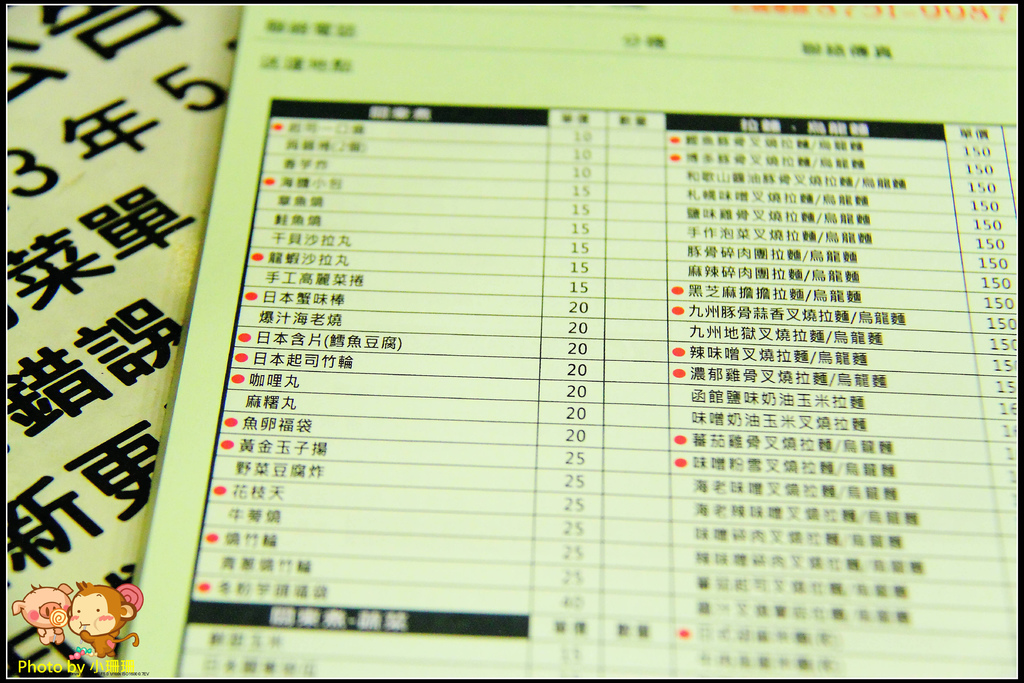 年5
3
菜單
錯誤
新更
3751-0087
聯絡電話 分機 聯絡傳真
送達地點
關東煮 單價 數量
起司一口燒 10
10
香芋炸 10
海膽小包 15
章魚燒 15
鮭魚燒 15
干貝沙拉丸 15
龍蝦沙拉丸 15
手工高麗菜捲 15
日本蟹味棒 20
爆汁海老燒 20
日本含片(鱈魚豆腐) 20
日本起司竹輪 20
咖哩丸 20
麻糬丸 20
魚卵福袋 20
黃金玉子揚 25
野菜豆腐炸 25
花枝天 25
牛蒡燒 25
燒竹輪 25
青蔥燒竹輪 25
40
關東煮-蔬菜 單價 數量
拉麵、烏龍麵 單價
鰹魚豚骨叉燒拉麵/烏龍麵 150
博多豚骨叉燒拉麵/烏龍麵 150
和歌山醬油豚骨叉燒拉麵/烏龍麵 150
札幌味噌叉燒拉麵/烏龍麵 150
鹽味雞骨叉燒拉麵/烏龍麵 150
手作泡菜叉燒拉麵/烏龍麵 150
豚骨碎肉團拉麵/烏龍麵 150
麻辣碎肉團拉麵/烏龍麵 150
黑芝麻擔擔拉麵/烏龍麵 150
九州豚骨蒜香叉燒拉麵/烏龍麵 150
九州地獄叉燒拉麵/烏龍麵
辣味噌叉燒拉麵/烏龍麵
濃郁雞骨叉燒拉麵/烏龍麵
函館鹽味奶油玉米拉麵
味噌奶油玉米叉燒拉麵
蕃茄雞骨叉燒拉麵/烏龍麵
味噌粉雪叉燒拉麵/烏龍麵
海老味噌叉燒拉麵/烏龍麵
海老辣味噌叉燒拉麵/烏龍麵
味噌碎肉叉燒拉麵/烏龍麵
辣味噌碎肉叉燒拉麵/烏龍麵
Photo by 小珊珊